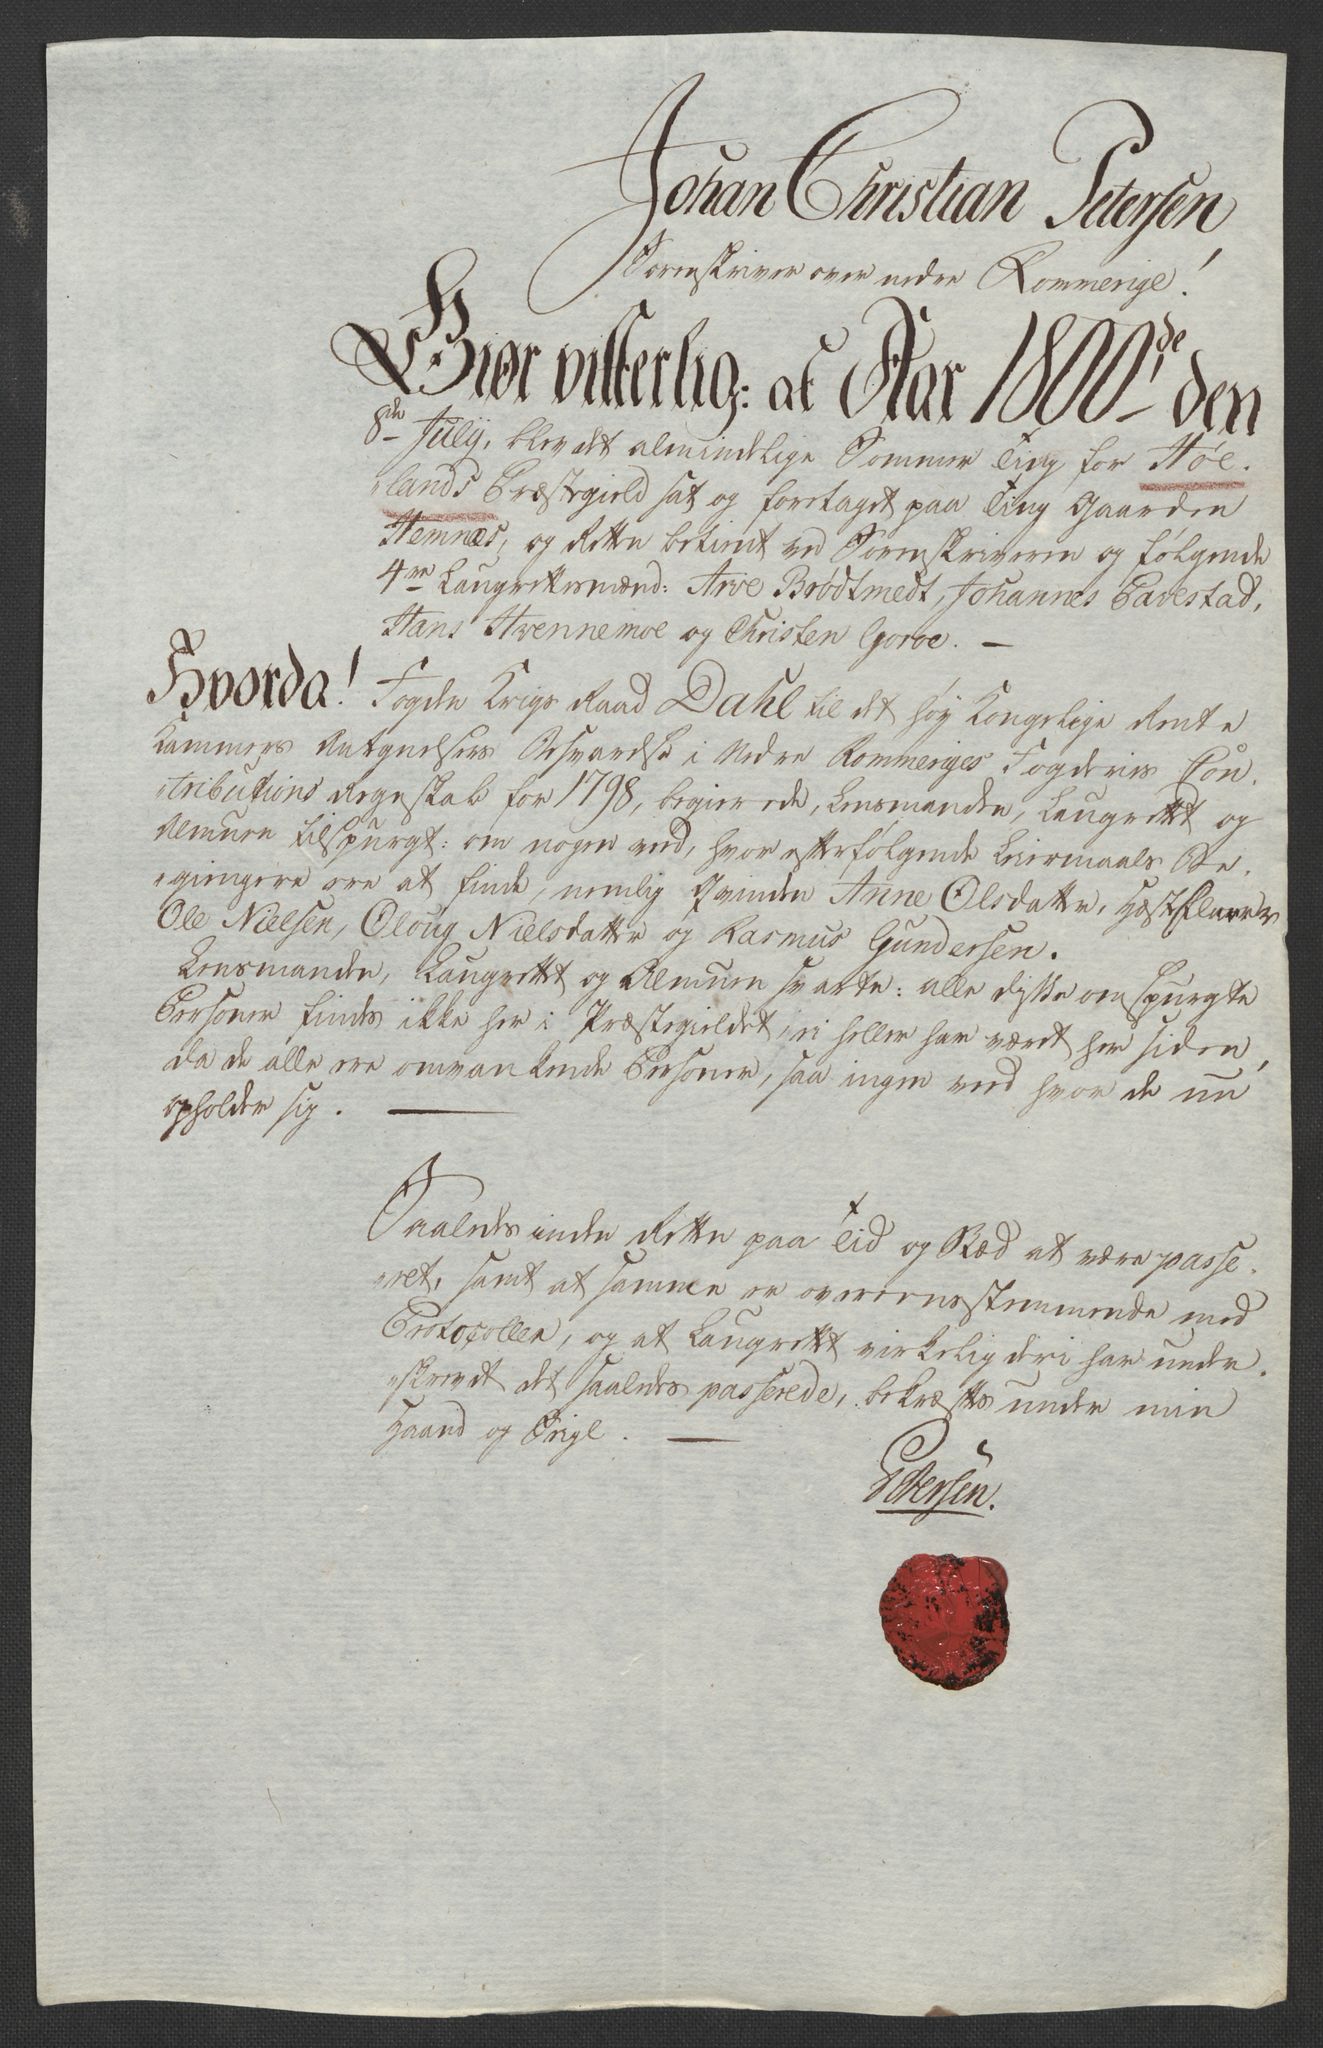 Johan Christian Petersen
Sorenskriver over nedre Rommerige!
Giør vitterlig: at Aar 1800de den
8de July, blev det almindelige Sommer Ting for Høe-
lands Præstegield sat og foretaget paa Ting Gaarden
Hemnæs, og Retten betient ved Sorenskriveren og følgende
4re Laugrettesmænd: Arve Brødtmedt, Johannes Tavestad,
Hans Hvennemoe og Christen Goroe. —
Hvorda! Fogden Krigs Raad Dahl til det høy Kongelige Rente
Kammers Antegnelsers Besvarelse i Nedre Rommeriges Fogderies Con-
tributions Regnskab for 1798, begierede, Lensmanden, Laugrettet og
Almuen tilspurgt: om nogen veed, hvor efterfølgende Leiermaals Be-
giengere ere at finde, nemlig Qvinden Anne Olsdatter,
Ole Nielsen, Oloug Nielsdatter og Rasmus Gundersen.
Lensmanden, Laugrettet og Almuen svarte: alle disse omspurgte
Personer findes ikke her i Præstegieldet, ei heller har været her siden,
da de alle ere omvankende Personer, saa ingen veed hvor de nu
opholder sig. —
Saaledes inden Retten paa Tid og Stæd at være passe-
ret, samt at samme er overeensstemmende med
Protocollen, og at Laugrettet virkelig deri har under-
skrevet det saaledes passerede, bekræftes under min
Haand og Seigl. —
Petersen.